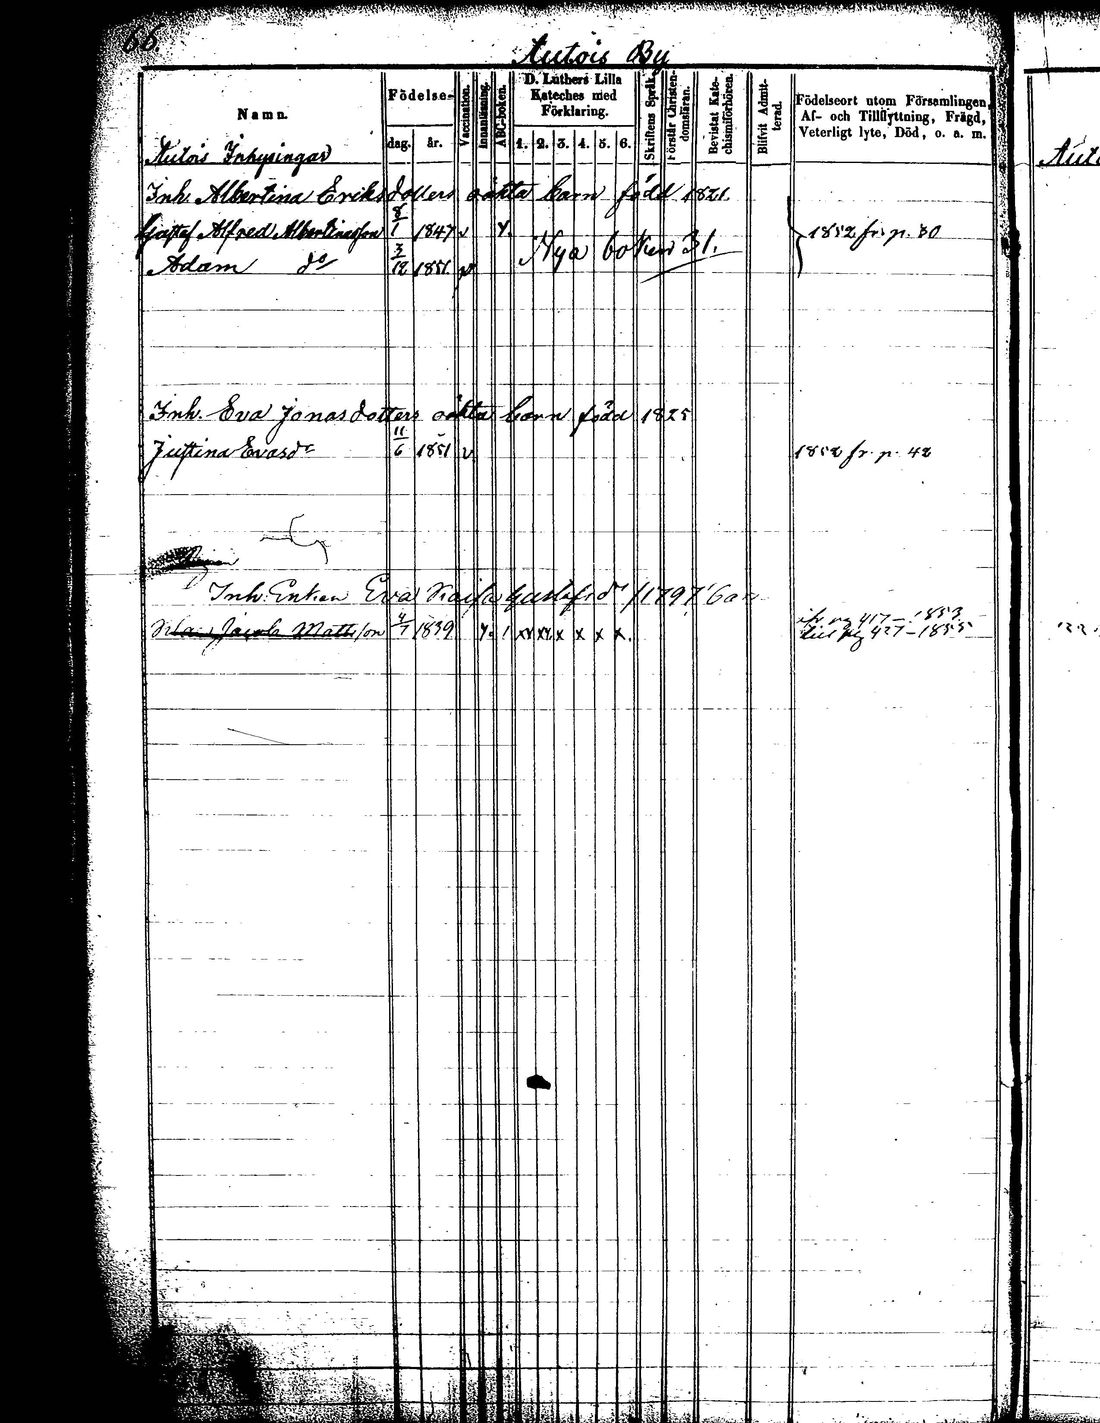 66.
Autois By
Namn.
Födelse-
dag. år.
Vaccination.
Innanläsning.
ABC-boken.
D. Luthers Lilla
Kateches med
Förklaring.
1. 2. 3. 4. 5. 6.
Skriftens Språk.
Förstår Christen-
domsläran.
Bevistat Kate-
chismiförhören.
Blifvit Admit-
terad.
Födelseort utom Församlingen,
Af- och Tillflyttning, Frägd,
Veterligt lyte, Död, o. a. m.
Autois Inhysingar
Inh. Albertina Eriksdotters oäkta barn född 1821.
Gustaf Alfred Albertinasson 8/1 1847 v Y. 1852 fr. p. 30
Adam do 3/12 1851 v Nya boken 31.
Inh. Eva Jonasdotters oäkta barn född 1825
Justina Evasdr 11/6 1851 v 1852 fr. p. 42
Inh. Enkan Eva Kaisa Gustafsdr /1797
Jacob Mattsson 4/7 1839 x x x x x x. pg 417–1853.
till pg 427–1855